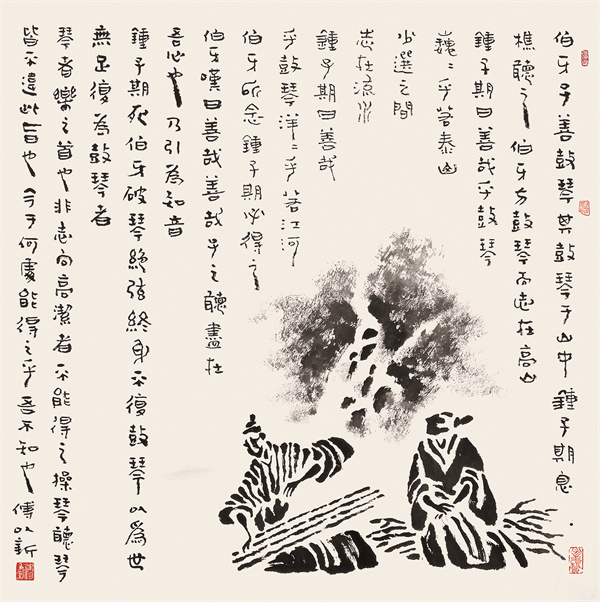 伯牙子善鼓琴其鼓琴于山中鍾子期息
樵聽之伯牙方鼓琴而志在高山
鍾子期曰善哉乎鼓琴
巍〻乎若泰山
少選之間
志在流水
鍾子期曰善哉
乎鼓琴洋〻乎若江河
伯牙所念鍾子期必得之
伯牙嘆曰善哉善哉子之聽盡在
吾心也乃引為知音
鍾子期死伯牙破琴絕弦終身不復鼓琴以為世
無足復為鼓琴者
琴者樂之首也非志向高潔者不能得之操琴聽琴
皆不違此旨也今于何處能得之乎吾不知也傅以新